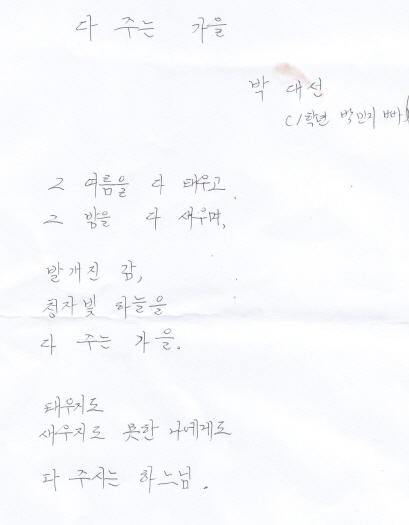 다 주는 가을
박 대선
(1학년 박민지 빠)
그 여름을 다 태우고
그 밤을 다 새우며,
발개진 감,
청자빛 하늘을
다 주는 가을.
태우지도
새우지도 못한 나에게도
다 주시는 하느님.